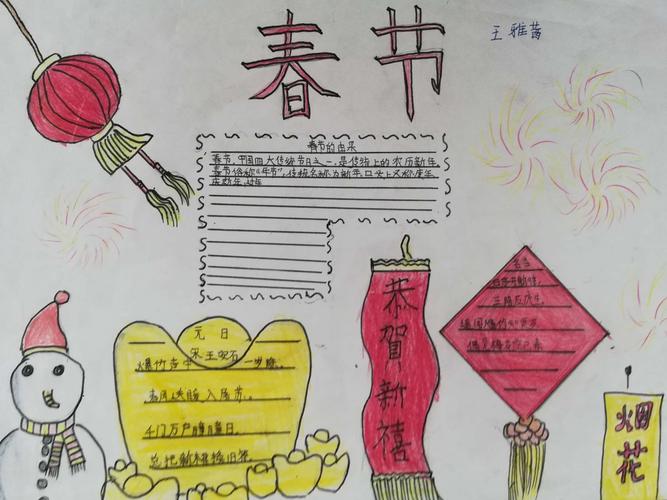 春节
王雅
春节的由来
春节,中国四大传统节日之一,是传统上的农历新年。
春节俗称"年节",传统名称为新年,口头上又称度年
庆新年、过年
元日
宋王安石
爆竹声中一岁除,
春风送暖入屠苏。
千门万户曈曈日,
总把新桃换旧符。
恭賀新禧
遥闻爆竹知更岁
偶见梅花
烟花